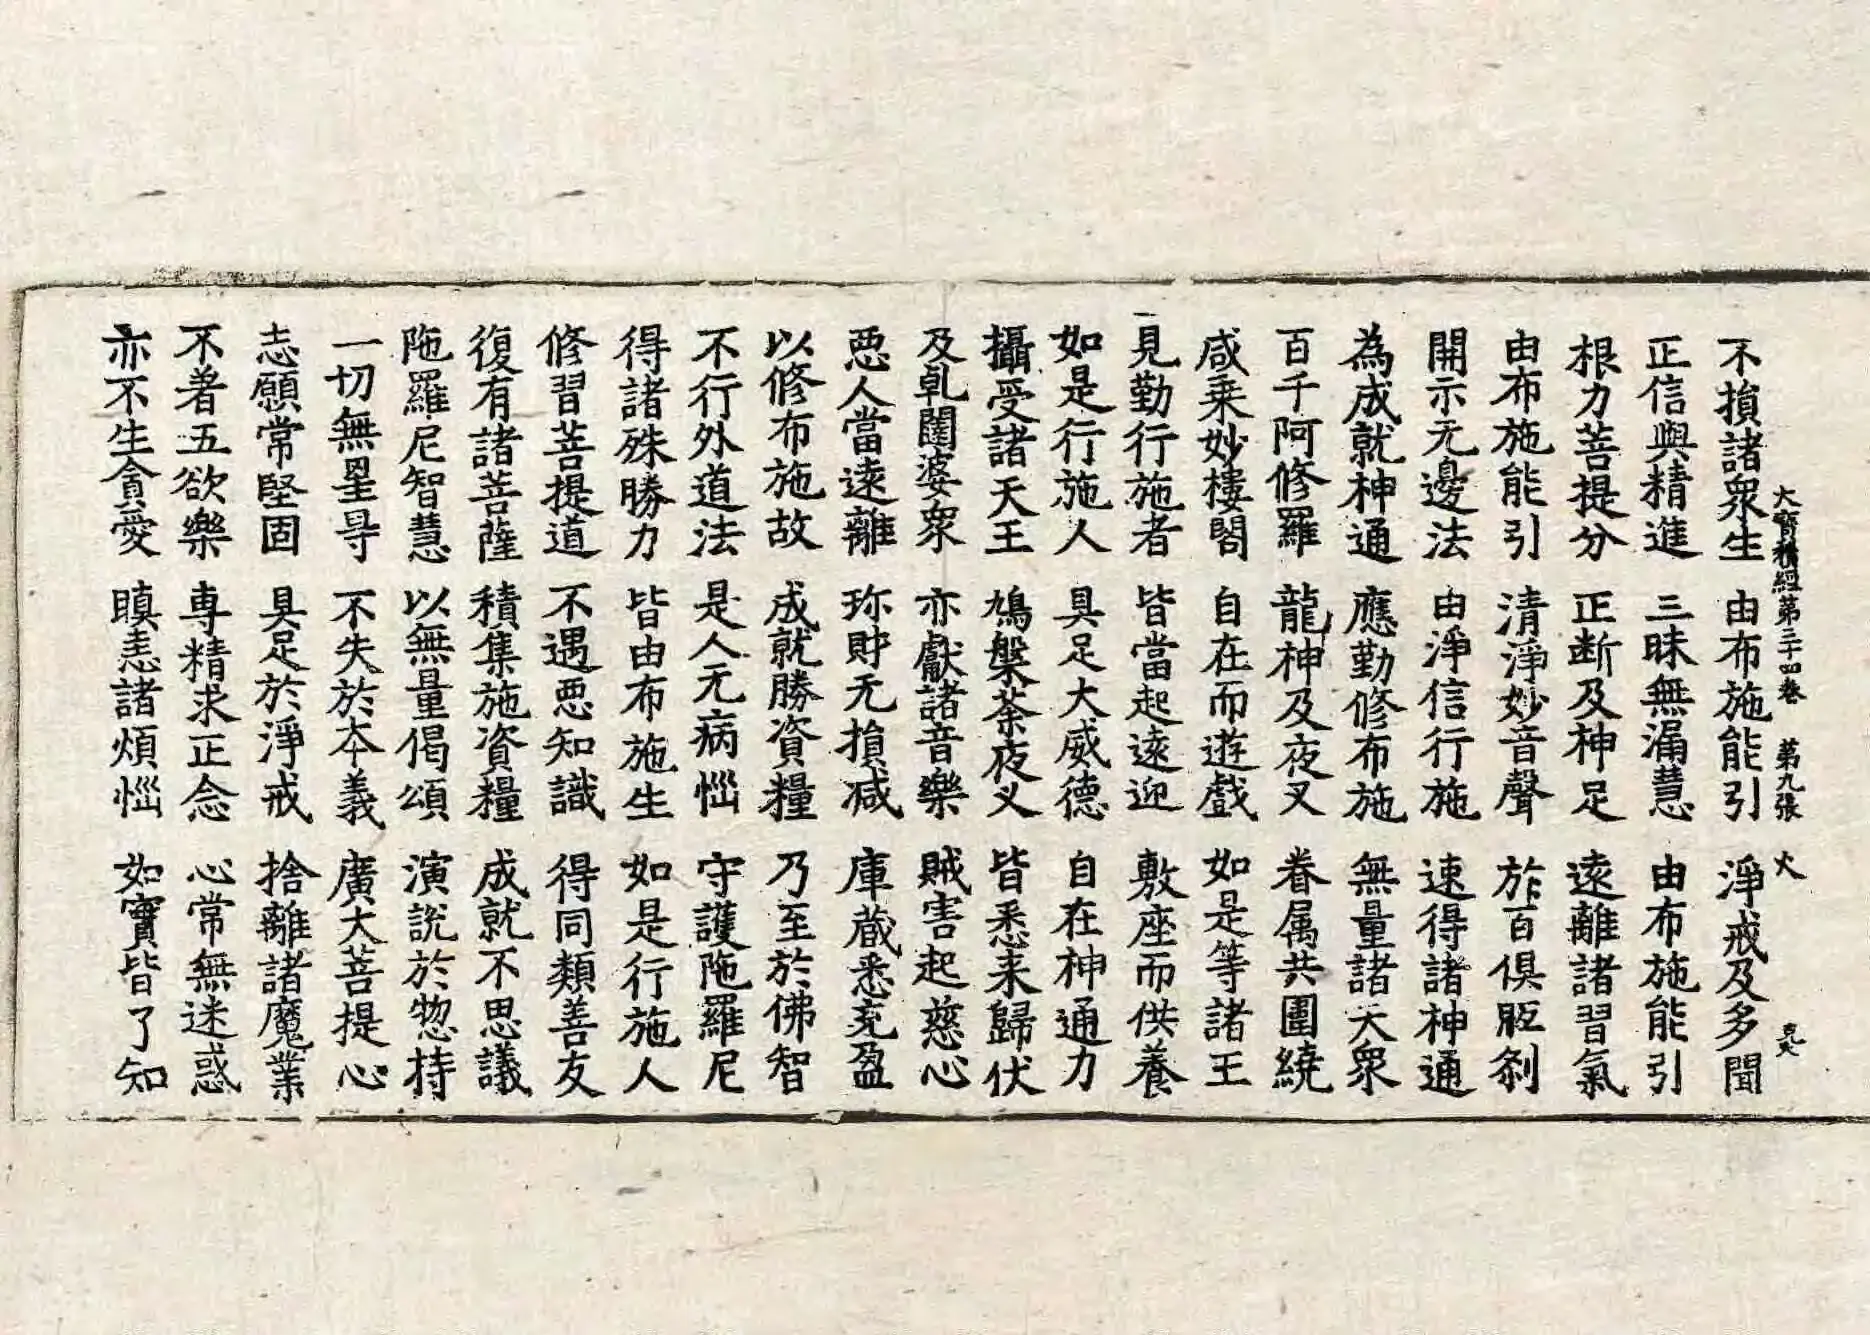 大寳積經第三十四卷　第九張　火
不損諸衆生　由布施能引　淨戒及多聞
正信與精進　三昧無漏慧　由布施能引
根力菩提分　正断及神足　遠離諸習氣
由布施能引　清淨妙音聲　於百俱胝剎
開示无邊法　由淨信行施　速得諸神通
為成就神通　應勤修布施　無量諸天衆
百千阿修羅　龍神及夜叉　眷属共圍繞
咸乗妙樓閣　自在而遊戲　如是等諸王
見勤行施者　皆當起遠迎　敷座而供養
如是行施人　具足大威德　自在神通力
攝受諸天王　鳩槃荼夜叉　皆悉来歸伏
及乹闥婆衆　亦獻諸音樂　賊害起慈心
惡人當遠離　珎財无損减　庫蔵悉充盈
以修布施故　成就勝資糧　乃至於佛智
不行外道法　是人无病惱　守護陁羅尼
得諸殊勝力　皆由布施生　如是行施人
修習菩提道　不遇惡知識　得同類善友
復有諸菩薩　積集施資糧　成就不思議
陁羅尼智慧　以無量偈頌　演說於惣持
一切無罣㝵　不失於夲義　廣大菩提心
志願常堅固　具足於淨戒　捨離諸魔業
不著五欲樂　専精求正念　心常無迷惑
亦不生貪愛　瞋恚諸煩惱　如實皆了知